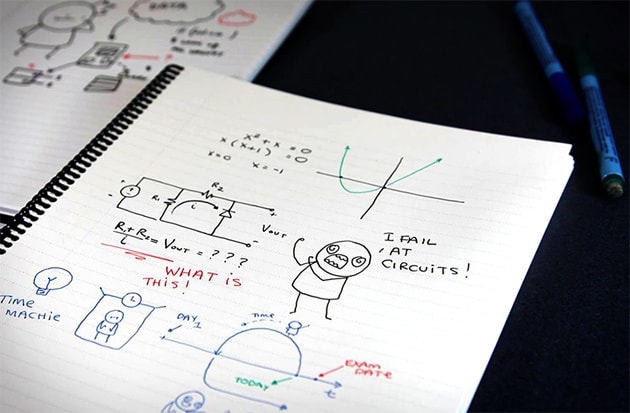 DATA
x² + x = 0
x(x+1) = 0
x=0 x = -1
R2
R1
L
Vout
R1+R2/L = Vout = ? ? ?
WHAT IS
THIS!
I FAIL
AT
CIRCUITS!
TIME
MACHIE
DAY
1
TIME
TODAY
EXAM
DATE
t